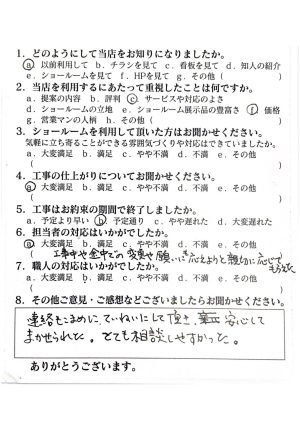 1. どのようにして当店をお知りになりましたか。
a. 以前利用して b. チラシを見て c. 看板を見て d. 知人の紹介
e. ショールームを見て f. HPを見て g. その他(
2. 当店を利用するにあたって重視したことは何ですか。
a. 提案の内容 b. 評判 c. サービスや対応のよさ
d. ショールームの立地 e. ショールーム展示品の豊富さ f. 価格
g. 営業マンの人柄 h. その他(
3. ショールームを利用して頂いた方はお聞かせください。
気軽に立ち寄ることができる雰囲気づくりや対応はできていましたか。
a. 大変満足 b. 満足 c. やや不満 d. 不満 e. その他
(
4. 工事の仕上がりについてお聞かせください。
a. 大変満足 b. 満足 c. やや不満 d. 不満 e. その他
(
5. 工事はお約束の期間で終了しましたか。
a. 予定より早い b. 予定通り c. やや遅れた d. 大変遅れた
6. 担当者の対応はいかがでしたか。
a. 大変満足 b. 満足 c. やや不満 d. 不満 e. その他
( 工事中や途中での変更や願いに応えようと親切に応じて
7. 職人の対応はいかがでしたか。
a. 大変満足 b. 満足 c. やや不満 d. 不満 e. その他
(
8. その他ご意見・ご感想などございましたらお聞かせください。
連絡もこまめに、ていねいにして頂き、安心して
まかせられた。とても相談しやすかった。
ありがとうございます。